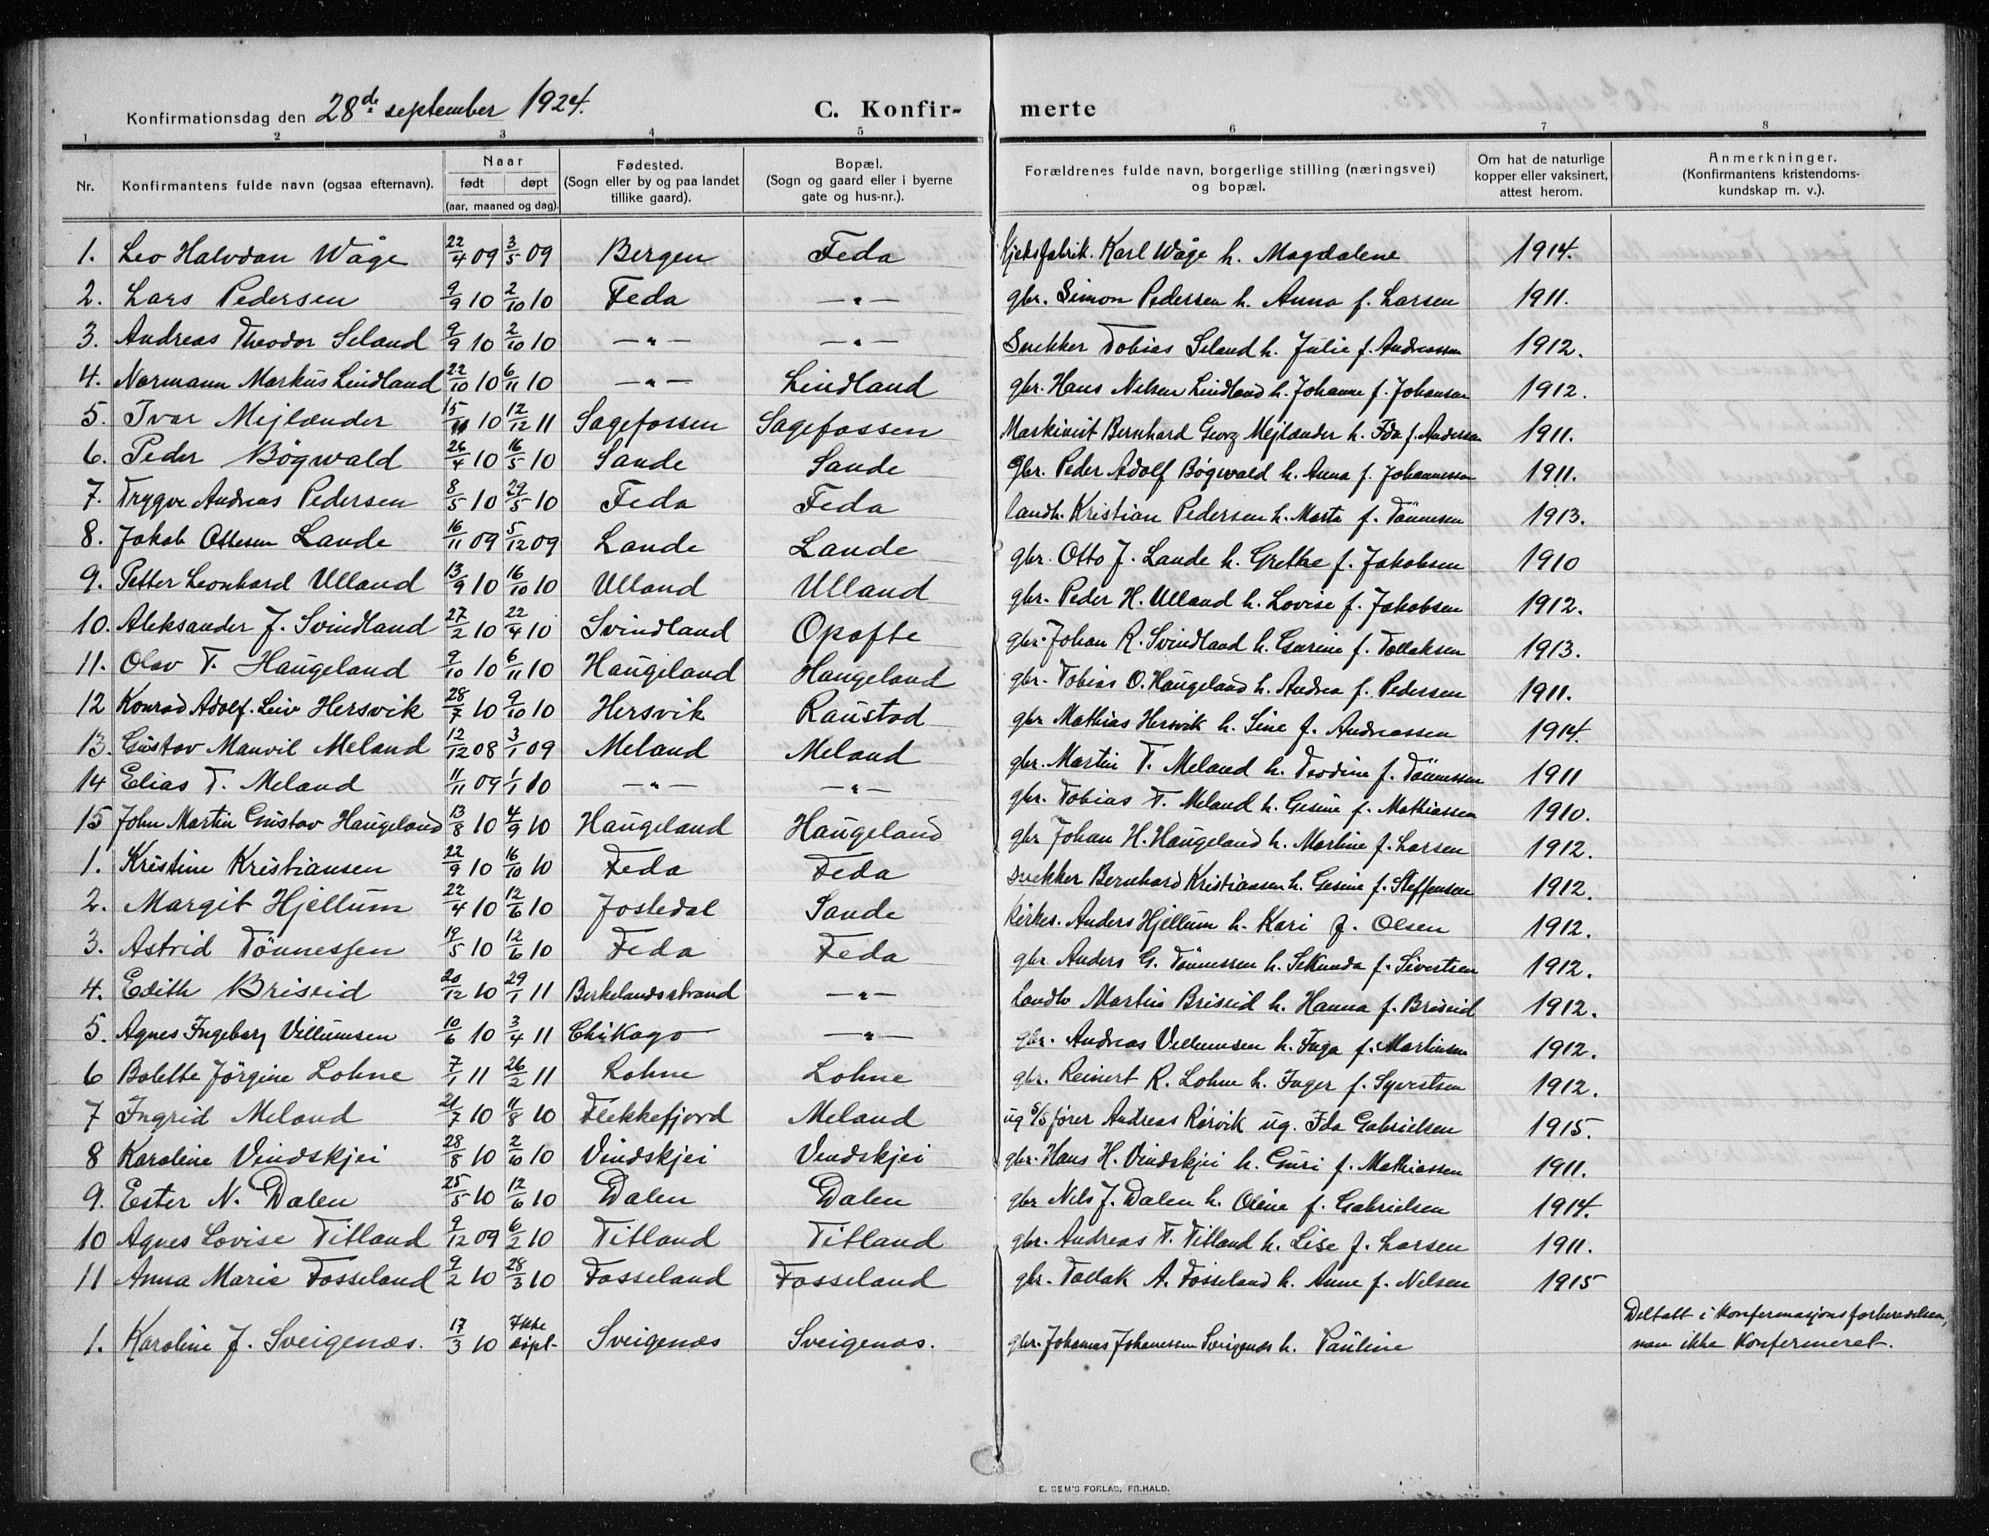 Konfirmationsdag den 28de september 1924. C. Konfir- merte
1 2 3 4 5 6 7 8
Nr. Konfirmantens fulde navn (ogsaa efternavn). Naar født døpt (aar, maaned og dag). Fødested. (Sogn eller by og paa landet tillike gaard). Bopæl. (Sogn og gaard eller i byerne gate og hus-nr.). Forældrenes fulde navn, borgerlige stilling (næringsvei) og bopæl. Om hat de naturlige kopper eller vaksinert, attest herom. Anmerkninger. (Konfirmantens kristendomskundskap m. v.).
1. Leo Halvdan Wåge 22/4 09 3/5 09 Bergen Feda Kjeksfabrik. Karl Wåge h. Magdalene 1914.
2. Lars Pedersen 9/9 10 2/10 10 Feda —"— gbr. Simon Pedersen h. Anna f. Larsen 1911.
3. Andreas Theodor Seland 9/9 10 2/10 10 —"— —"— Snekker Tobias Seland h. Julie f. Andreassen 1912.
4. Normann Markus Lindland 22/10 10 6/11 10 —"— Lindland gbr. Hans Nilsen Lindland h. Johanne f. Johansen 1912.
5. Ivar Mejlænder 15/10 10 12/12 11 Sagefossen Sagefossen Maskinist Bernhard Georg Mejlænder h. Ida f. Andersen 1911.
6. Peder Bøgwald 26/4 10 16/5 10 Sande Sande Gbr. Peder Adolf Bøgwald h. Anna f. Johannessen 1911.
7. Trygve Andreas Pedersen 8/5 10 29/5 10 Feda Feda landh. Kristian Pedersen h. Marta f. Tønnesen 1913.
8. Jakob Ottesen Lande 16/11 09 5/12 09 Lande Lande gbr. Otto J. Lande h. Grethe f. Jakobsen 1910
9. Petter Leonhard Ulland 13/9 10 16/10 10 Ulland Ulland gbr. Peder H. Ulland h. Lovise f. Jakobsen 1912.
10. Aleksander J. Svindland 27/2 10 22/4 10 Svindland Opofte gbr. Johan R. Svindland h. Gurine f. Tollaksen 1913.
11. Olav T. Haugeland 9/10 10 6/11 10 Haugeland Haugeland gbr. Tobias O. Haugeland h. Andrea f. Pedersen 1911.
12 Konrad Adolf Leiv Hersvik 28/7 10 9/10 10 Hersvik Raustad gbr Mathias Hersvik h. Sine f. Andreassen 1914.
13. Gustav Manvil Meland 12/12 08 3/1 09 Meland Meland gbr. Martin T. Meland h. Teodine f. Tønnessen 1911
14 Elias T. Meland 11/11 09 1/1 10 —"— —"— gbr. Tobias T. Meland h. Gesine f. Mathiassen 1910.
15 John Martin Gustav Haugeland 13/8 10 4/9 10 Haugeland Haugeland gbr Johan H. Haugeland h. Martine f. Larsen 1912.
1. Kristine Kristiansen 22/9 10 16/10 10 Feda Feda Snekker Bernhard Kristiansen h. Gesine f. Steffensen 1912.
2. Margit Hjellum 22/4 10 12/6 10 Jostedal Sande Kirkes. Anders Hjellum h. Kari f. Olsen 1912.
3. Astrid Tönnessen 19/5 10 12/6 10 Feda Feda gbr Anders G. Tönnessen h. Sekunda f. Sivertsen 1912.
4. Edith Briseid 20/12 10 29/1 11 Berkelandsstrand —"— Landh Martin Briseid h. Hanna f. Briseid 1912.
5. Agnes Ingeborg Villumsen 10/6 10 3/4 11 Chikago —"— gbr. Andreas Villumsen h. Inga f. Martinsen 1912.
6 Bolette Jörgine Lohne 7/1 11 26/2 11 Lohne Lohne gbr. Reinert R. Lohne h. Inger f. Syvertsen 1912.
7 Ingrid Meland 21/7 10 11/8 10 Flekkefjord Meland ug S/S fører Andreas Rørvik ug. Ida Gabrielsen 1915.
8 Karoline Vindskjei 28/8 10 2/10 10 Vindskjei Vindskjei gbr. Hans H. Vindskjei h. Guri f. Mathiassen 1911.
9. Ester N. Dalen 25/5 10 12/6 10 Dalen Dalen gbr Nils J. Dalen h. Oline f. Gabrielsen 1914.
10 Agnes Lovise Titland 9/12 09 6/2 10 Titland Titland gbr. Andreas T. Titland h. Lise f. Larsen 1911.
11 Anna Marie Fosseland 9/2 10 28/3 10 Fosseland Fosseland gbr. Tollak A. Fosseland h. Anne f. Nilsen 1915
1. Karoline J. Sveigenæs. 17/3 10 Ikke döpt. Sveigenæs Sveigenæs. gbr. Johannes Johannessen Sveigenæs h. Pauline Deltatt i Konfermasjonsforberedelsen, men ikke Konfermeret.
E. SEM'S FORLAG, FR.HALD.